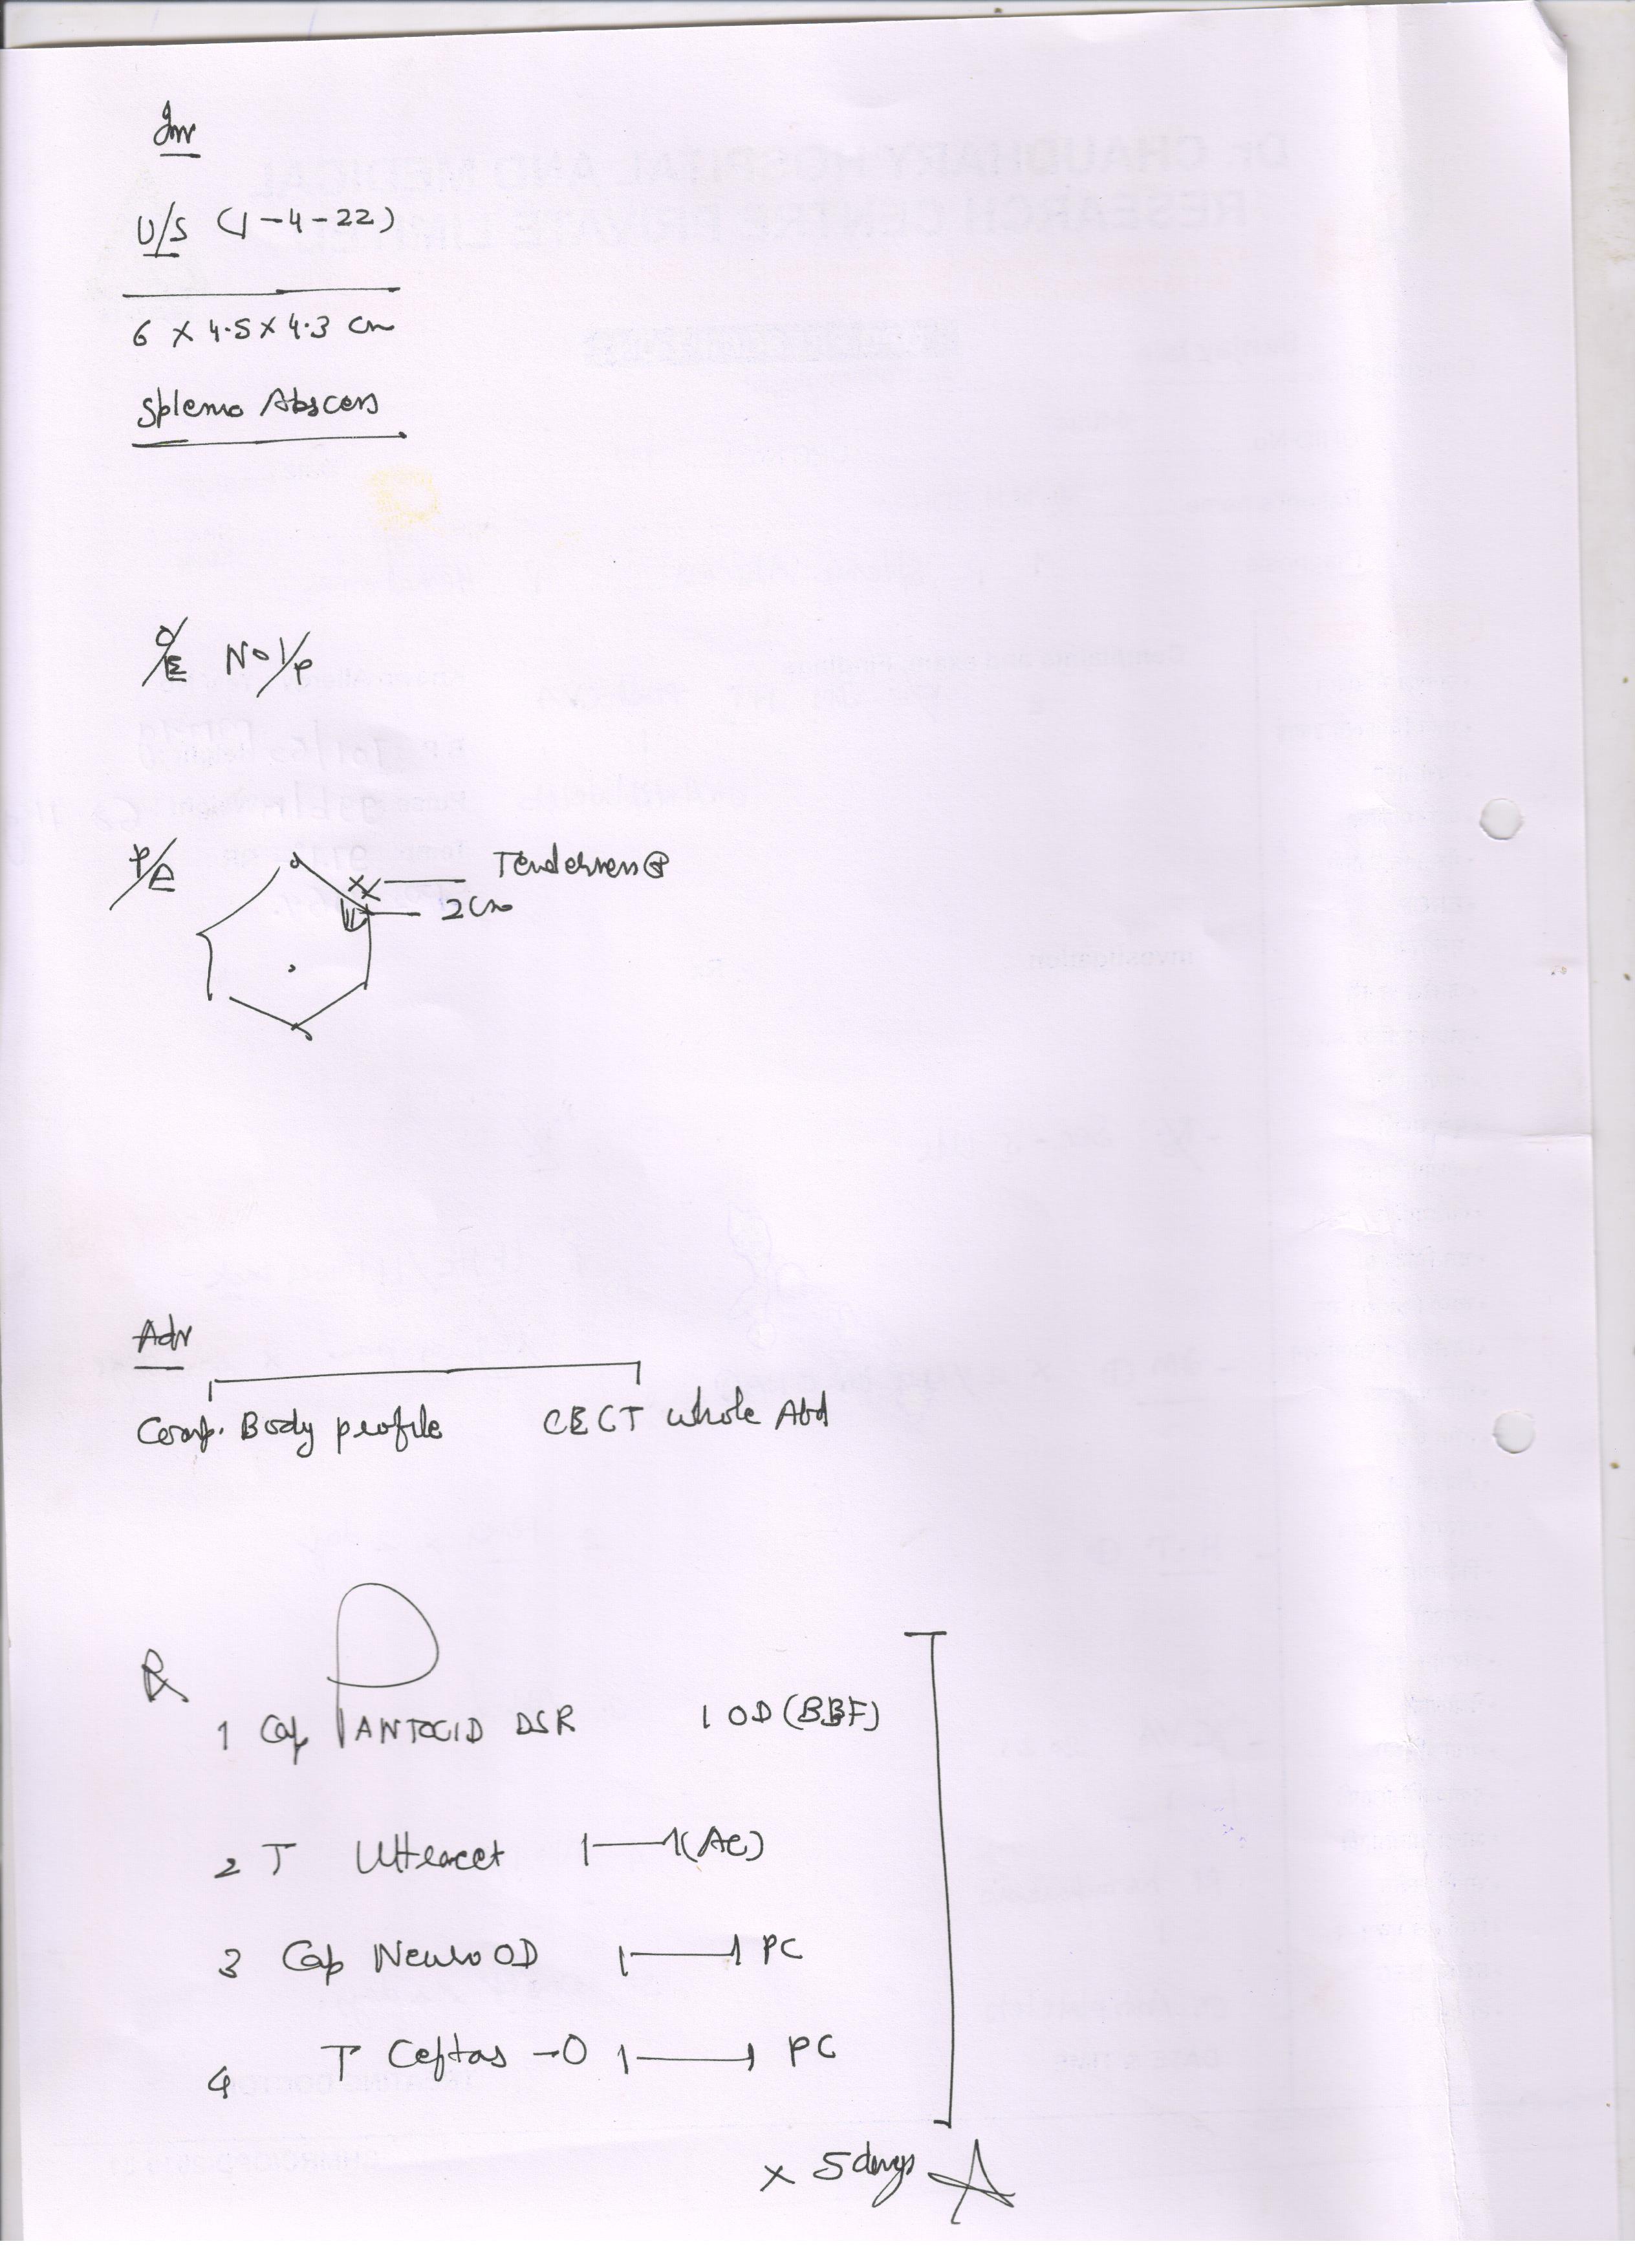 Inv
U/S (1-4-22)
6 X 4.5 X 4.3 cm
Spleno Abscess
O/E No I/P
P/A
Tenderness ⊕
2cm
Adv
Comp. Body profile CECT whole Abd
Rx
1 Cap PANTOCID DSR 1 OD (BBF)
2 T Ultracet 1—1 (AC)
3 Cap Neuro OD 1—1 PC
4 T Ceftas-O 1—1 PC
x 5 days